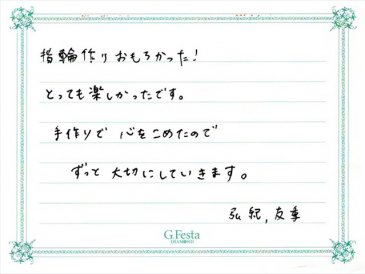 指輪作りおもしろかった!
とっても楽しかったです。
手作りで 心をこめたので
ずっと 大切にしていきます。
弘紀, 友季
G.Festa
DIAMOND